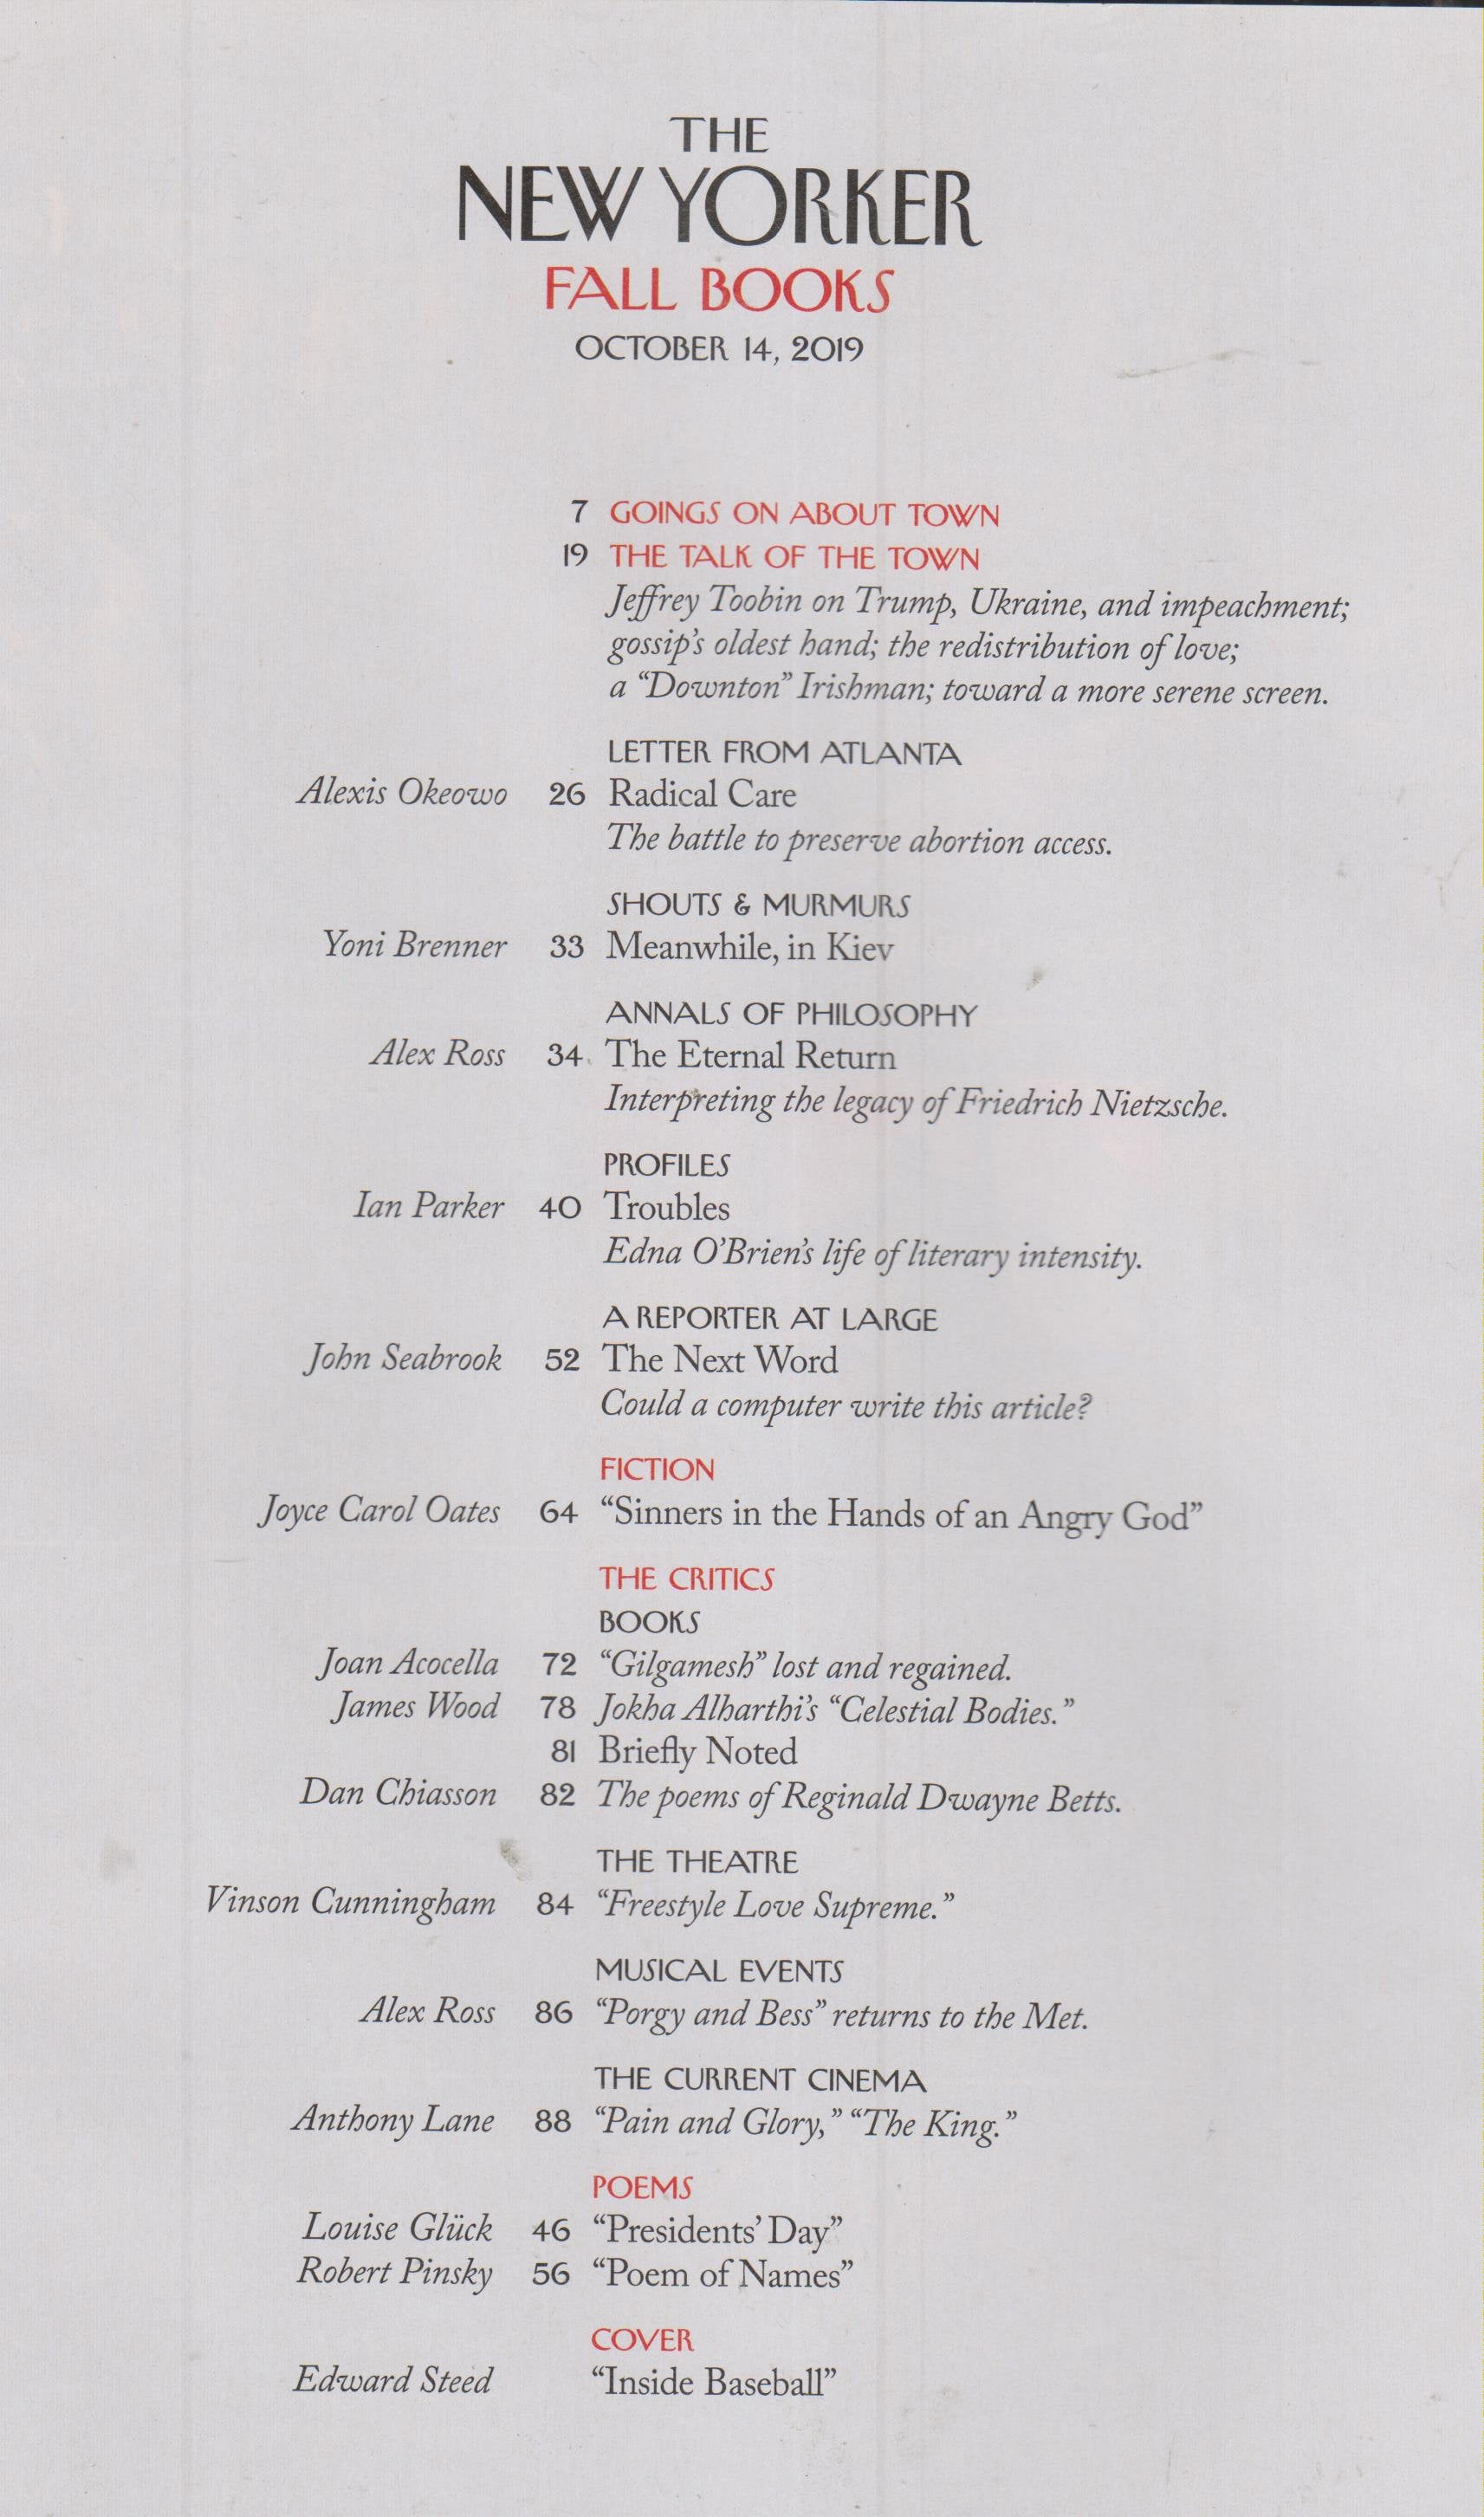 THE
NEW YORKER
FALL BOOKS
OCTOBER 14, 2019
7 GOINGS ON ABOUT TOWN
19 THE TALK OF THE TOWN
Jeffrey Toobin on Trump, Ukraine, and impeachment;
gossip’s oldest hand; the redistribution of love;
a “Downton” Irishman; toward a more serene screen.
LETTER FROM ATLANTA
Alexis Okeowo 26 Radical Care
The battle to preserve abortion access.
SHOUTS & MURMURS
Yoni Brenner 33 Meanwhile, in Kiev
ANNALS OF PHILOSOPHY
Alex Ross 34 The Eternal Return
Interpreting the legacy of Friedrich Nietzsche.
PROFILES
Ian Parker 40 Troubles
Edna O’Brien’s life of literary intensity.
A REPORTER AT LARGE
John Seabrook 52 The Next Word
Could a computer write this article?
FICTION
Joyce Carol Oates 64 “Sinners in the Hands of an Angry God”
THE CRITICS
BOOKS
Joan Acocella 72 “Gilgamesh” lost and regained.
James Wood 78 Jokha Alharthi’s “Celestial Bodies.”
81 Briefly Noted
Dan Chiasson 82 The poems of Reginald Dwayne Betts.
THE THEATRE
Vinson Cunningham 84 “Freestyle Love Supreme.”
MUSICAL EVENTS
Alex Ross 86 “Porgy and Bess” returns to the Met.
THE CURRENT CINEMA
Anthony Lane 88 “Pain and Glory,” “The King.”
POEMS
Louise Glück 46 “Presidents’ Day”
Robert Pinsky 56 “Poem of Names”
COVER
Edward Steed “Inside Baseball”